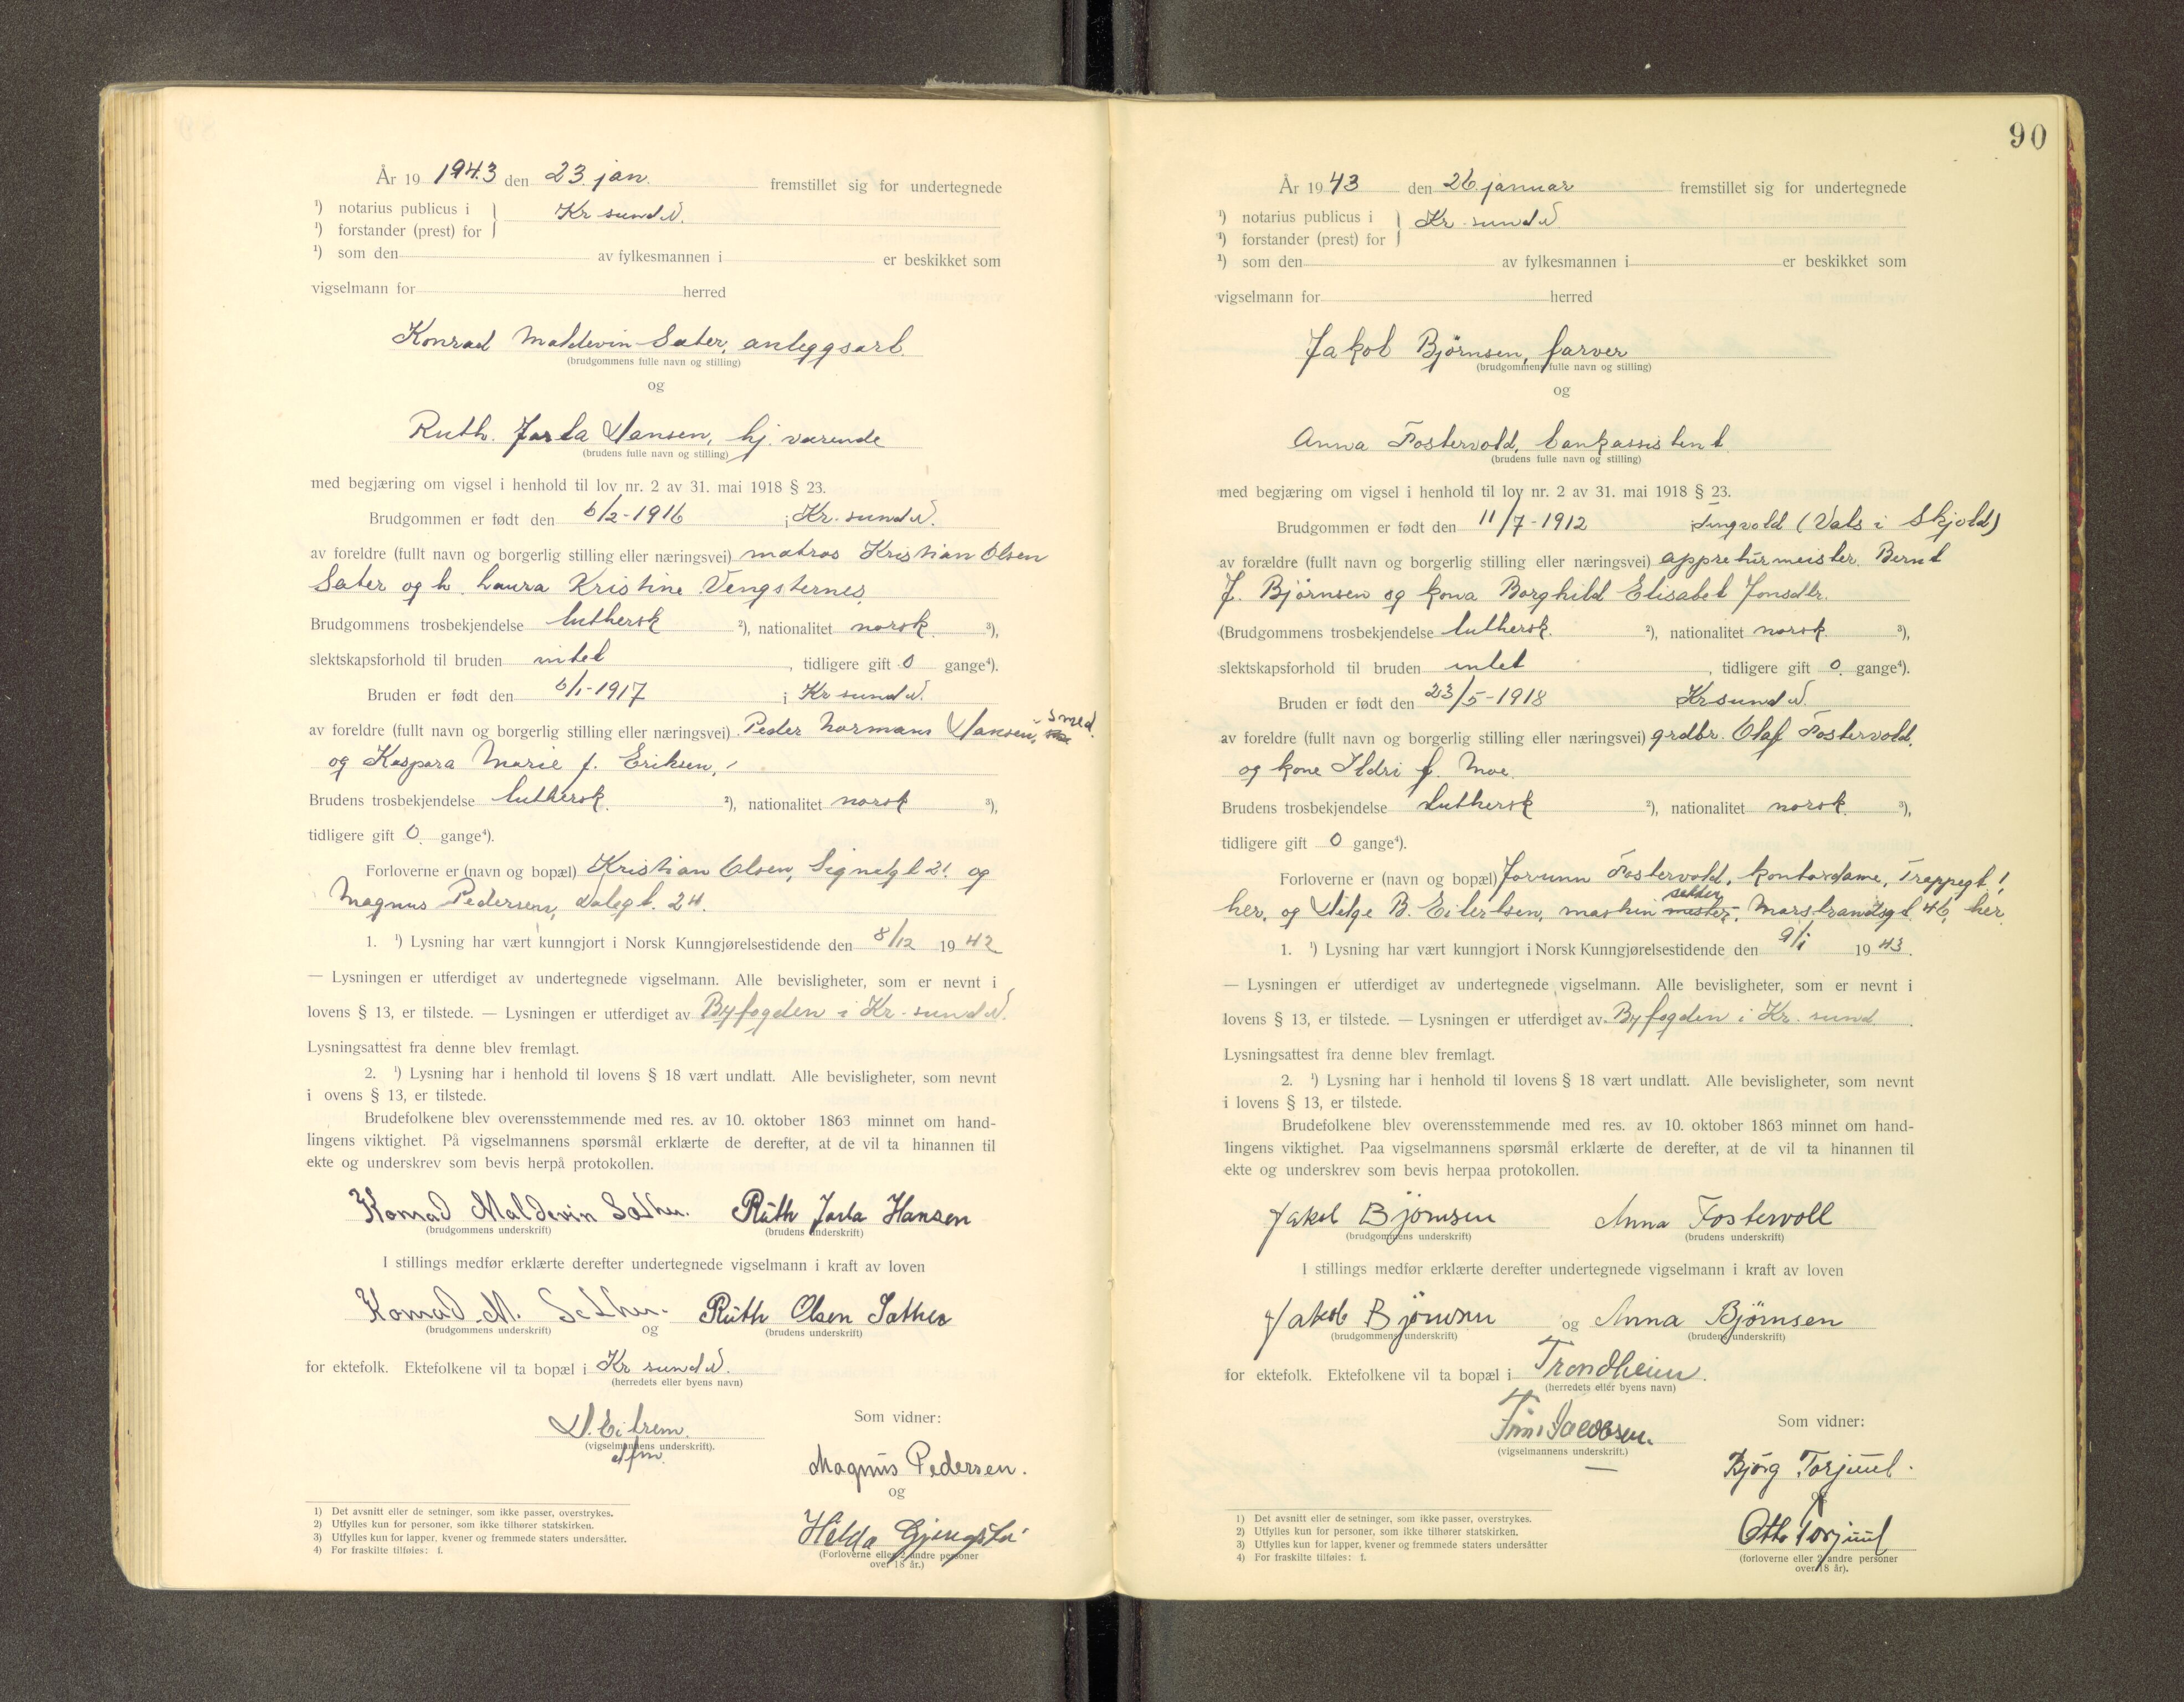 År 19 1943 den 23. jan. fremstillet sig for undertegnede
¹) notarius publicus i } Kr. sund N.
¹) forstander (prest) for
¹) som den av fylkesmannen i er beskikket som
vigselmann for herred
Konrad Maldevin Sæter, anleggsarb.
(brudgommens fulle navn og stilling)
og
Ruth Jarla Hansen, hj. værende
(brudens fulle navn og stilling)
med begjæring om vigsel i henhold til lov nr. 2 av 31. mai 1918 § 23.
Brudgommen er født den 6/2-1916 i Kr. sund N.
av foreldre (fullt navn og borgerlig stilling eller næringsvei) matros Kristian Olsen
Sæter og h. Laura Kristine Vengsternes
Brudgommens trosbekjendelse luthersk ²), nationalitet norsk ³),
slektskapsforhold til bruden intet, tidligere gift 0 gange⁴).
Bruden er født den 6/1-1917 i Kr sund N.
av foreldre (fullt navn og borgerlig stilling eller næringsvei) Peder Normann Hansen, smed.
og Kaspara Marie f. Eriksen,
Brudens trosbekjendelse luthersk. ²), nationalitet norsk ³),
tidligere gift 0. gange⁴).
Forloverne er (navn og bopæl) Kristian Olsen, Signelgt 21 og
Magnus Pedersen, Dalegt. 24.
1. ¹) Lysning har vært kunngjort i Norsk Kunngjørelsestidende den 8/12 1942
— Lysningen er utferdiget av undertegnede vigselmann. Alle bevisligheter, som er nevnt i
lovens § 13, er tilstede. — Lysningen er utferdiget av Byfogden i Kr. sund N.
Lysningsattest fra denne blev fremlagt.
2. ¹) Lysning har i henhold til lovens § 18 vært undlatt. Alle bevisligheter, som nevnt
i ovens § 13, er tilstede.
Brudefolkene blev overensstemmende med res. av 10. oktober 1863 minnet om hand-
lingens viktighet. På vigselmannens spørsmål erklærte de derefter, at de vil ta hinannen til
ekte og underskrev som bevis herpå protokollen.
Konrad Maldevin Sæther. Ruth Jarla Hansen
(brudgommens underskrift) (brudens underskrift)
I stillings medfør erklærte derefter undertegnede vigselmann i kraft av loven
Konrad M. Sæther. og Ruth Olsen Sæther
(brudgommens underskrift) (brudens underskrift)
for ektefolk. Ektefolkene vil ta bopæl i Kr sund N.
(herredets eller byens navn)
Som vidner:
N. Eitrem.
(vigselmannens underskrift).
Magnus Pedersen.
og
Hilda
(Forloverne eller 2 andre personer
over 18 år.)
1) Det avsnitt eller de setninger, som ikke passer, overstrykes.
2) Utfylles kun for personer, som ikke tilhører statskirken.
3) Utfylles kun for lapper, kvener og fremmede staters undersåtter.
4) For fraskilte tilføies: f.
90
År 1943 den 26. januar fremstillet sig for undertegnede
¹) notarius publicus i } Kr. sund N.
¹) forstander (prest) for
¹) som den av fylkesmannen i er beskikket som
vigselmann for herred
Jakob Bjørnsen, farver
(brudgommens fulle navn og stilling)
og
Anna Fostervold, bankassistent
(brudens fulle navn og stilling)
med begjæring om vigsel i henhold til lov nr. 2 av 31. mai 1918 § 23.
Brudgommen er født den 11/7-1912 i Tingvold (Vals i Skjold)
av forældre (fullt navn og borgerlig stilling eller næringsvei) appreturmeister Bernt
J. Bjørnsen og kona Borghild Elisabet Jonsdtr.
(Brudgommens trosbekjendelse luthersk. ²), nationalitet norsk. ³),
slektskapsforhold til bruden intet, tidligere gift 0 gange⁴).
Bruden er født den 23/5-1918 Kr sund N.
av foreldre (fullt navn og borgerlig stilling eller næringsvei) grdbr. Olaf Fostervold,
og kone Ildri f. Moe.
Brudens trosbekjendelse luthersk ²), nationalitet norsk. ³),
tidligere gift 0 gange⁴).
Forloverne er (navn og bopæl) Jorunn Fostervold, kontordame, Trappegt 1
her, og Helge B. Eilertsen, maskin mester setter, Marstrandsgt. 46, her.
1. ¹) Lysning har vært kunngjort i Norsk Kunngjørelsestidende den 9/1 1943.
— Lysningen er utferdiget av undertegnede vigselmann. Alle bevisligheter, som er nevnt i
lovens § 13, er tilstede. — Lysningen er utferdiget av Byfogden i Kr. sund.
Lysningsattest fra denne blev fremlagt.
2. ¹) Lysning har i henhold til lovens § 18 vært undlatt. Alle bevisligheter, som nevnt
i lovens § 13, er tilstede.
Brudefolkene blev overensstemmende med res. av 10. oktober 1863 minnet om hand-
lingens viktighet. Paa vigselmannens spørsmål erklærte de derefter, at de vil ta hinannen til
ekte og underskrev som bevis herpaa protokollen.
Jakob Bjørnsen Anna Fostervoll
(brudgommens underskrift) (brudens underskrift)
I stillings medfør erklærte derefter undertegnede vigselmann i kraft av loven
Jakob Bjørnsen og Anna Bjørnsen
(brudgommens underskrift) (brudens underskrift)
for ektefolk. Ektefolkene vil ta bopæl i Trondheim.
(herredets eller byens navn)
Som vidner:
(vigselmannens underskrift.)
Bjørg Torjuul.
og
Otto Torjuul
(forloverne eller 2 andre personer
over 18 år).
1) Det avsnitt eller de setninger, som ikke passer, overstrykes.
2) Utfylles kun for personer, som ikke tilhører statskirken.
3) Utfylles kun for lapper, kvener og fremmede staters undersåtter
4) For fraskilte tilføies: f.